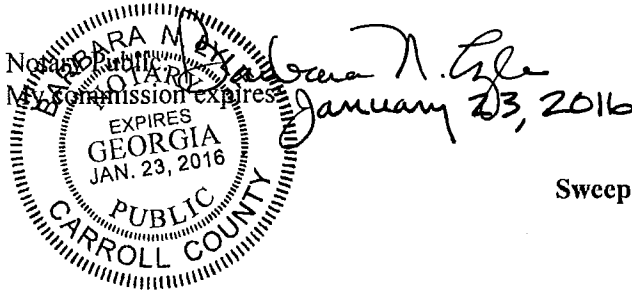 Notary Public
Barbara N. Lyle
My commission expires
January 23, 2016
BARBARA N
NOTARY
EXPIRES
GEORGIA
JAN. 23, 2016
PUBLIC
CARROLL COUNTY
Sweep